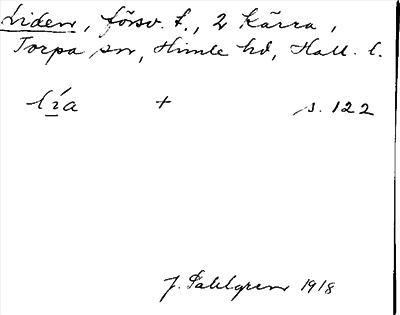 Liden, försv. t., 2 Kärra,
Torpa sn, Himle hd, Hall. l.
lía + s. 122
J. Sahlgren 1918